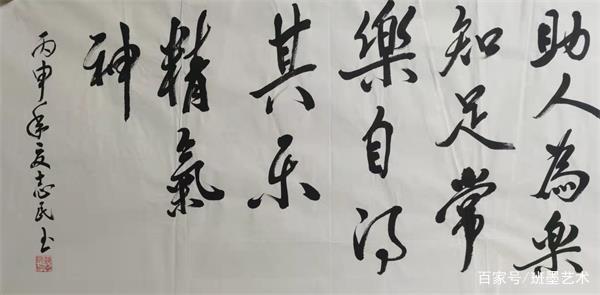 助人為樂
知足常
樂自得
其乐
精氣
神
丙申年夏志民书
百家号/班墨艺术